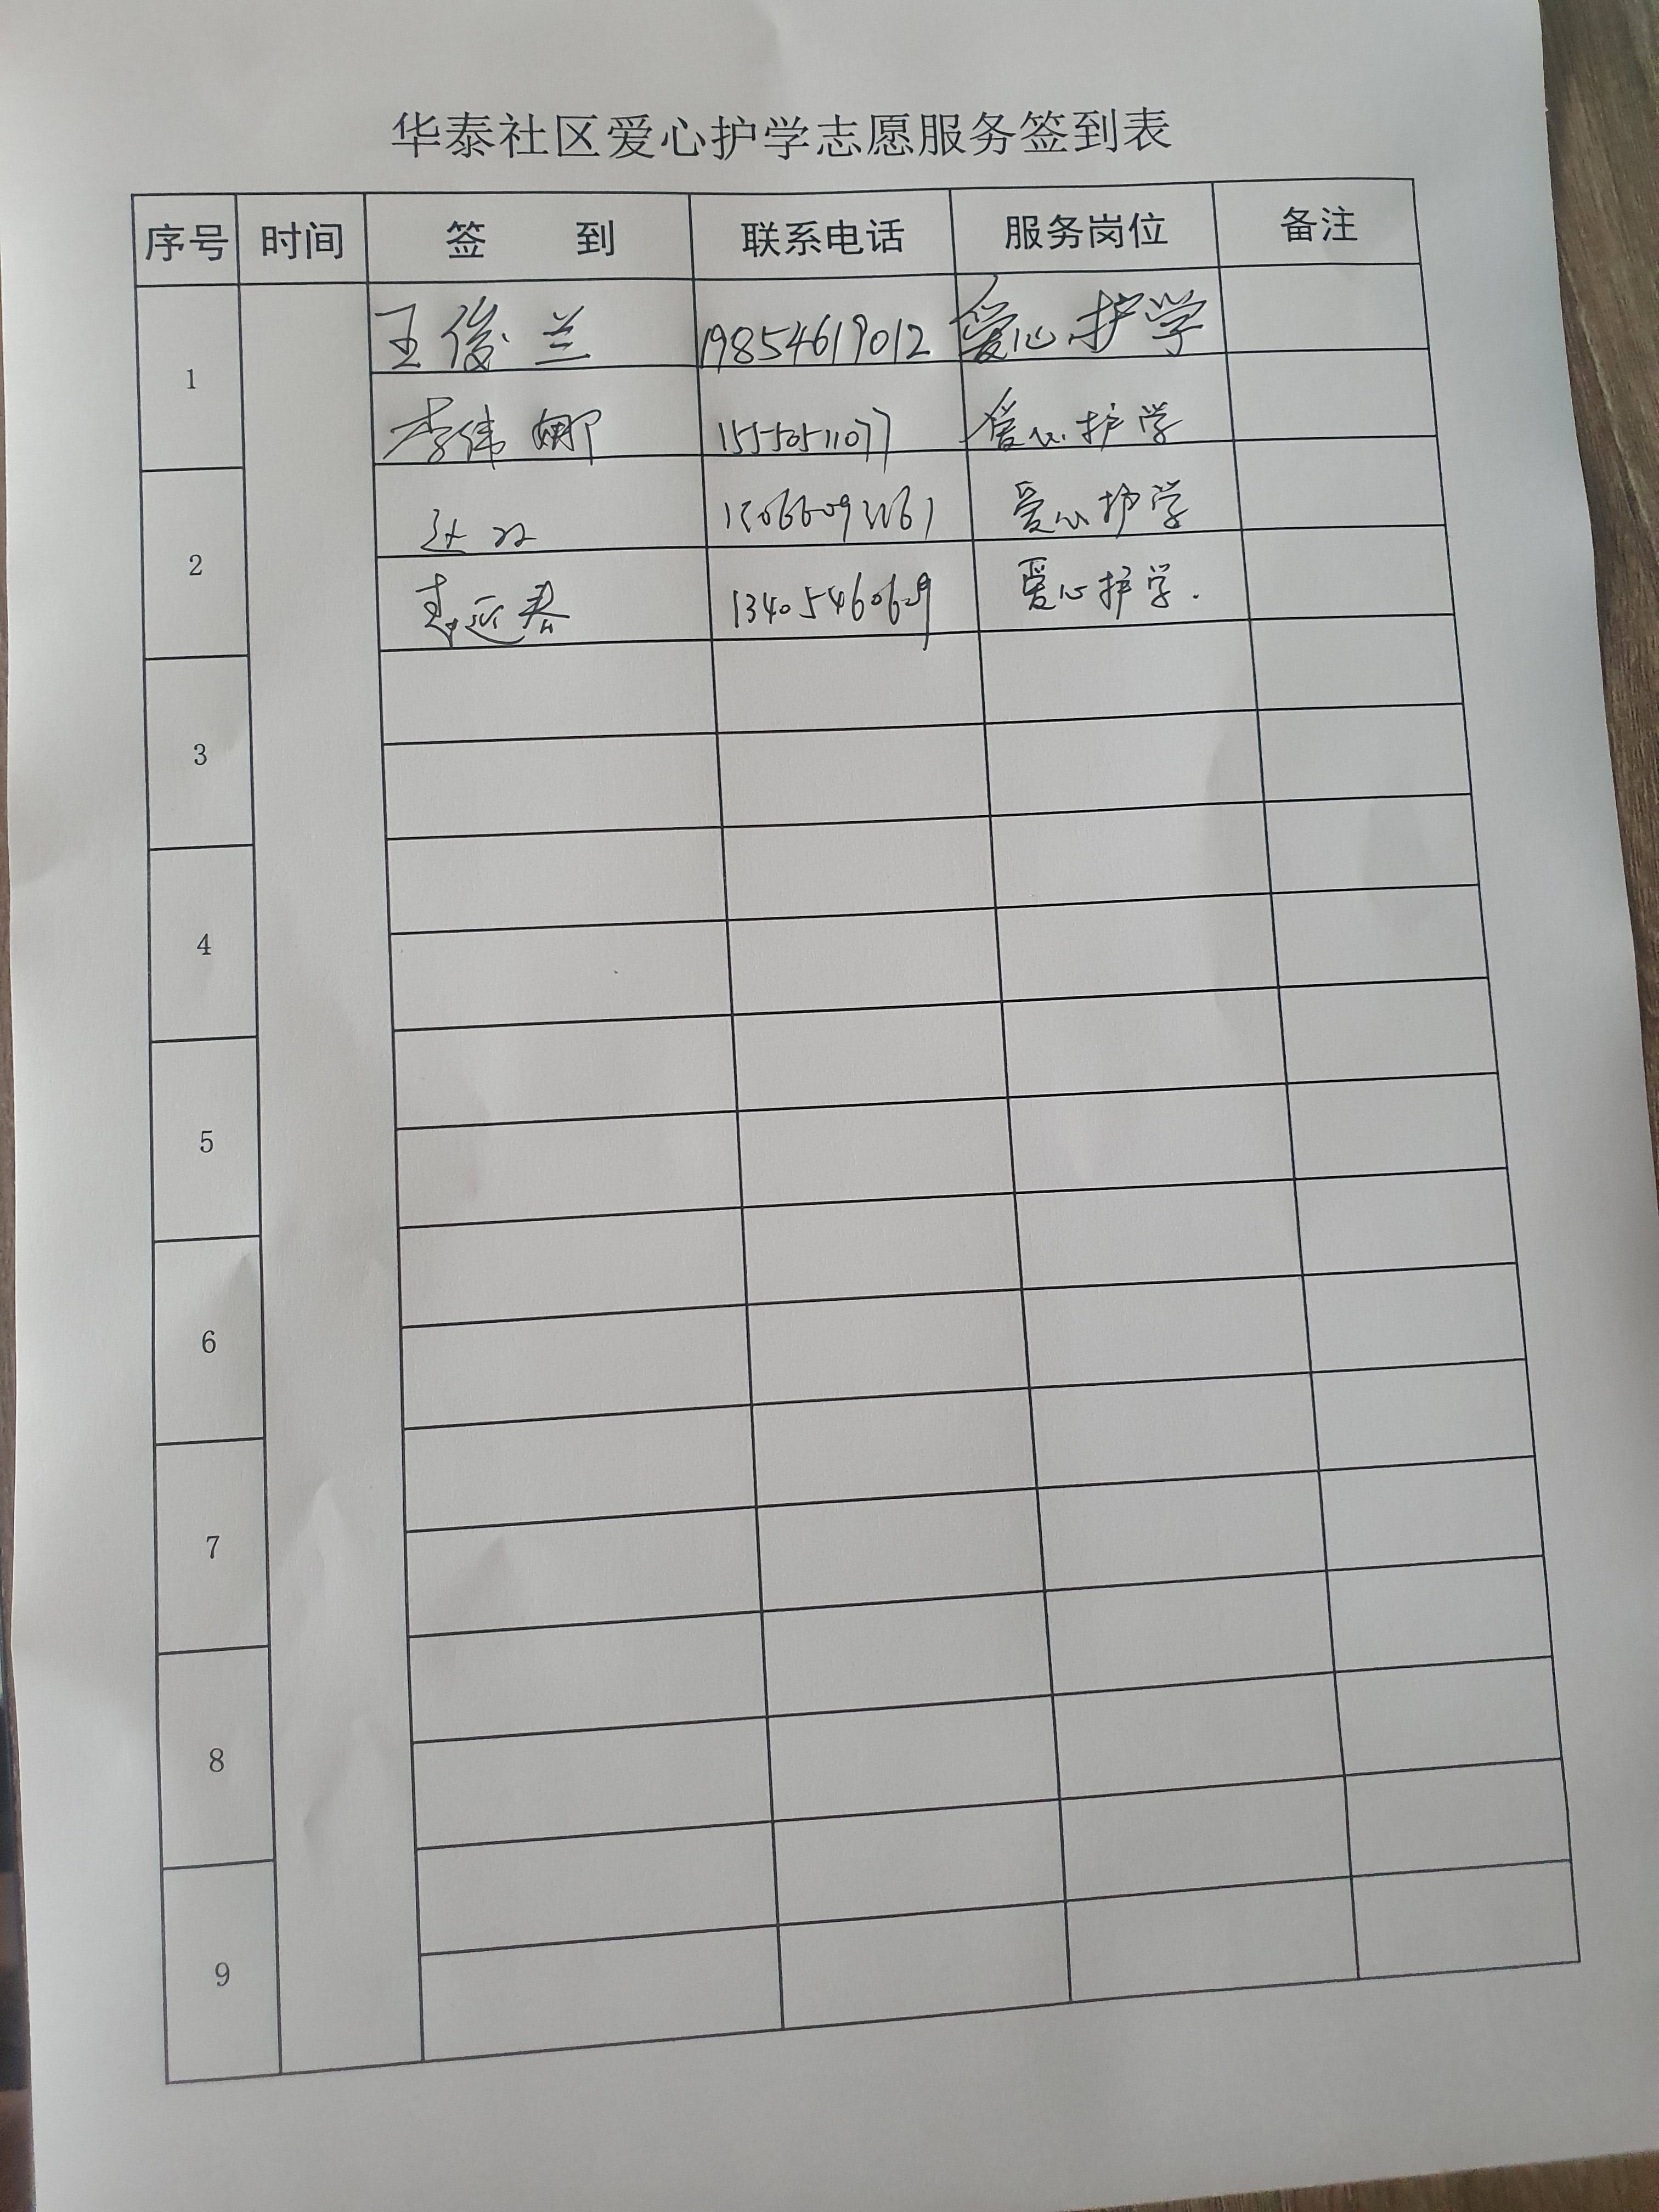 华泰社区爱心护学志愿服务签到表
序号 时间 签 到 联系电话 服务岗位 备注
1
王俊兰 19854619012 爱心护学
李伟娜 15550511077 爱心护学
2
爱心护学
13405460609 爱心护学.
3
4
5
6
7
8
9